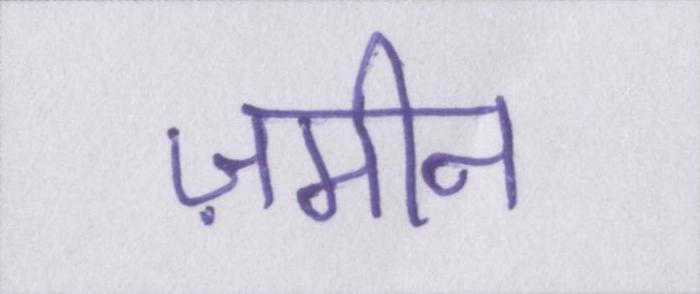 ज़मीन